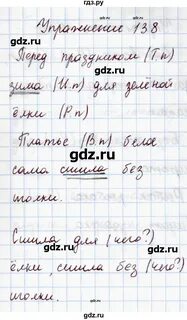 гдз.ру
Упражнение 138
Перед праздником (Т.п)
зима (И.п) для зелёной
ёлки (Р.п)
Платье (В.п) бела
сама сшила без
иголки.
Сшила для (чего?)
ёлки, сшила без (чего?)
иголки.